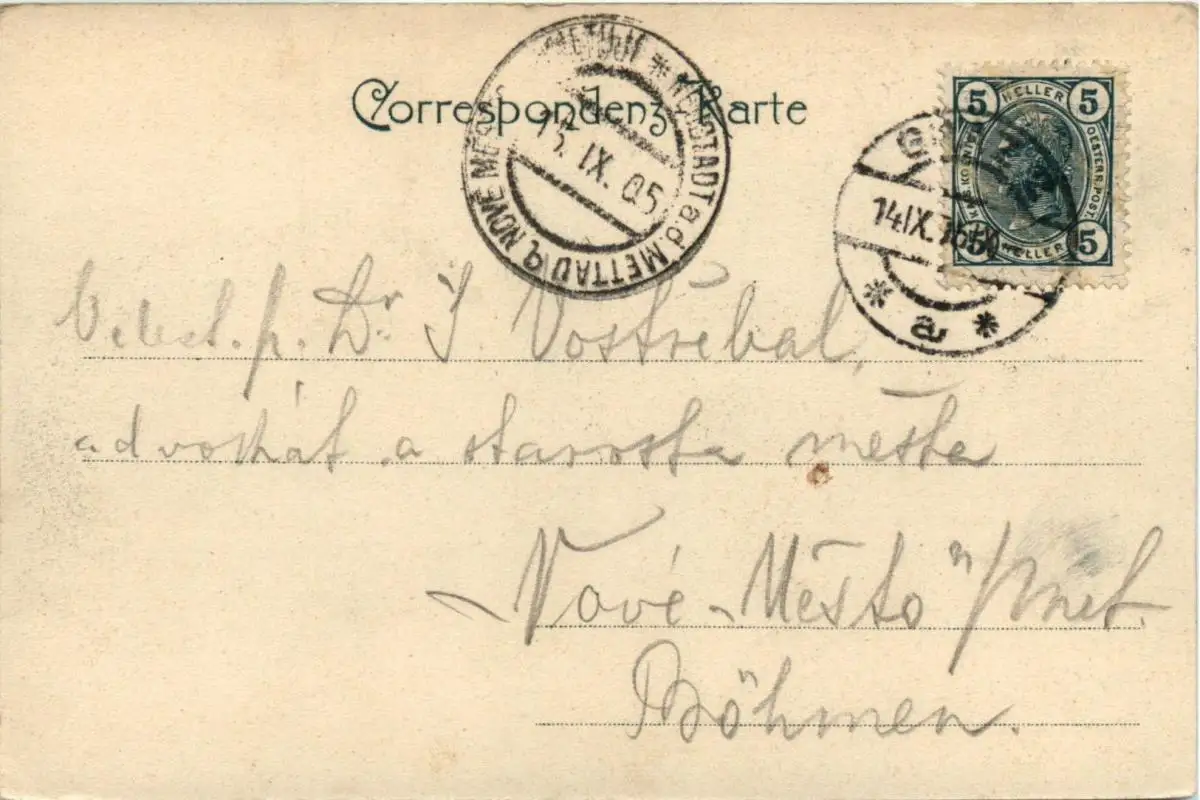 Correspondenz-Karte
NEUSTADT a.d. METTAU NOVÉ MĚSTO
15. IX. 05
14 IX.
* a *
5 HELLER 5
OESTERR. POST
5 HELLER 5
p. Dr. J. Vostřebal,
advokát a starosta města
Nové-Město n/Met.
Böhmen.